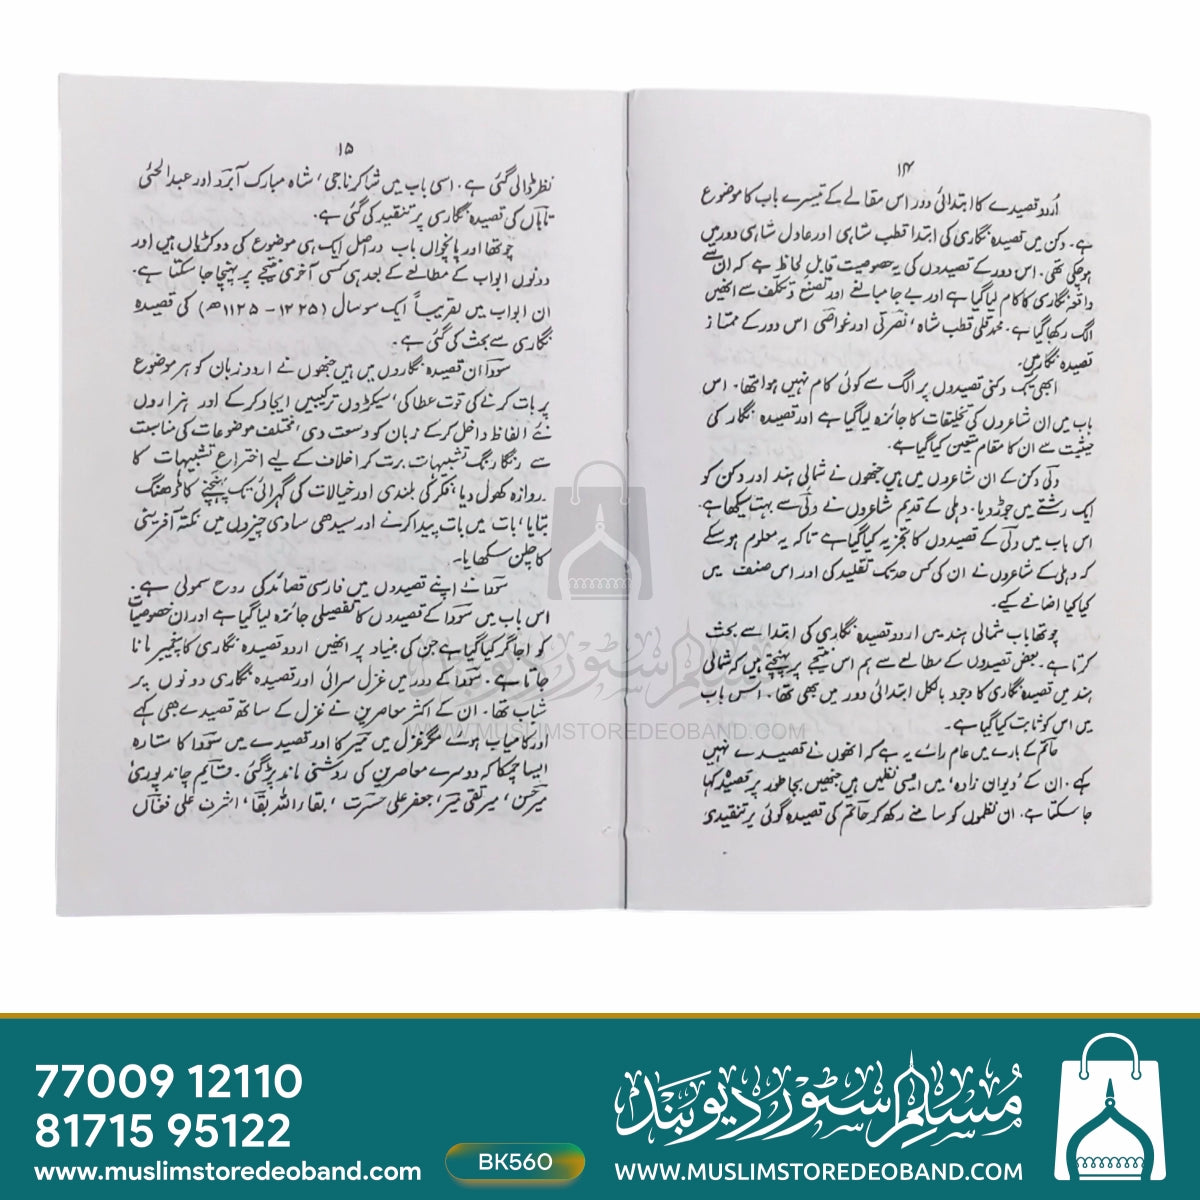 ۱۴
اُردو قصیدے کا ابتدائی دور اس مقالے کے تیسرے باب کا موضوع
ہے۔ دکن میں قصیدہ نگاری کی ابتدا قطب شاہی اور عادل شاہی دور میں
ہو چکی تھی۔ اس دور کے قصیدوں کی یہ خصوصیت قابلِ لحاظ ہے کہ ان سے
واقعہ نگاری کا کام لیا گیا ہے اور بے جا مبالغے اور تصنع و تکلف سے انھیں
الگ رکھا گیا ہے۔ محمد قلی قطب شاہ، نصرتی اور غواصی اس دور کے ممتاز
قصیدہ نگار ہیں۔
ابھی تک دکنی قصیدوں پر الگ سے کوئی کام نہیں ہوا تھا۔ اس
باب میں ان شاعروں کی تخلیقات کا جائزہ لیا گیا ہے اور قصیدہ نگار کی
حیثیت سے ان کا مقام متعین کیا گیا ہے۔
ولی دکن کے ان شاعروں میں ہیں جنھوں نے شمالی ہند اور دکن کو
ایک رشتے میں جوڑ دیا۔ دہلی کے قدیم شاعروں نے ولی سے بہت سیکھا ہے۔
اس باب میں ولی کے قصیدوں کا تجزیہ کیا گیا ہے تاکہ یہ معلوم ہو سکے
کہ دہلی کے شاعروں نے ان کی کس حد تک تقلید کی اور اس صنف میں
کیا کیا اضافے کیے۔
چوتھا باب شمالی ہند میں اردو قصیدہ نگاری کی ابتدا سے بحث
کرتا ہے۔ بعض قصیدوں کے مطالعے سے ہم اس نتیجے پر پہنچتے ہیں کہ شمالی
ہند میں قصیدہ نگاری کا وجود بالکل ابتدائی دور میں بھی تھا۔ اس باب
میں اس کو ثابت کیا گیا ہے۔
حاتم کے بارے میں عام رائے یہ ہے کہ انھوں نے قصیدے نہیں
کہے۔ ان کے 'دیوان زادہ' میں ایسی نظمیں ہیں جنھیں بجا طور پر قصیدہ کہا
جا سکتا ہے۔ ان نظموں کو سامنے رکھ کر حاتم کی قصیدہ گوئی پر تنقیدی
۱۵
نظر ڈالی گئی ہے۔ اسی باب میں شاکر ناجی، شاہ مبارک آبرو اور عبدالحئی
تاباں کی قصیدہ نگاری پر تنقید کی گئی ہے۔
چوتھا اور پانچواں باب دراصل ایک ہی موضوع کی دو کڑیاں ہیں اور
دونوں ابواب کے مطالعے کے بعد ہی کسی آخری نتیجے پر پہنچا جا سکتا ہے۔
ان ابواب میں تقریباً ایک سو سال (۱۲۲۵ - ۱۱۲۵ھ) کی قصیدہ
نگاری سے بحث کی گئی ہے۔
سودا ان قصیدہ نگاروں میں ہیں جنھوں نے اردو زبان کو ہر موضوع
پر بات کرنے کی قوت عطا کی، سیکڑوں ترکیبیں ایجاد کر کے اور ہزاروں
نئے الفاظ داخل کر کے زبان کو وسعت دی، مختلف موضوعات کی مناسبت
سے رنگا رنگ تشبیہات برت کر اخلاف کے لیے اختراعِ تشبیہات کا
دروازہ کھول دیا، فکر کی بلندی اور خیالات کی گہرائی تک پہنچنے کا ڈھنگ
بتایا، بات میں بات پیدا کرنے اور سیدھی سادی چیزوں میں نکتہ آفرینی
کا چلن سکھایا۔
سودا نے اپنے قصیدوں میں فارسی قصائد کی روح سموئی ہے۔
اس باب میں سودا کے قصیدوں کا تفصیلی جائزہ لیا گیا ہے اور ان خصوصیات
کو اجاگر کیا گیا ہے جن کی بنیاد پر انھیں اردو قصیدہ نگاری کا پیغمبر مانا
جاتا ہے۔ سودا کے دور میں غزل سرائی اور قصیدہ نگاری دونوں پر
شباب تھا۔ ان کے اکثر معاصرین نے غزل کے ساتھ قصیدے بھی کہے
اور کامیاب ہوئے مگر غزل میں میر کا اور قصیدے میں سودا کا ستارہ
ایسا چمکا کہ دوسرے معاصرین کی روشنی ماند پڑ گئی۔ قایم چاند پوری،
میر حسن، میر تقی میر، جعفر علی حسرت، بقاء اللہ بقا، اشرف علی فغاں
WWW.MUSLIMSTOREDEOBAND.COM
77009 12110
81715 95122
www.muslimstoredeoband.com
BK560
مسلم سٹور دیوبند
WWW.MUSLIMSTOREDEOBAND.COM